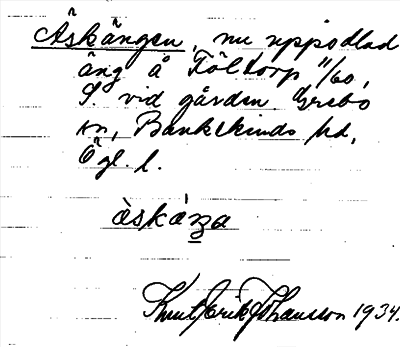 Äskängen, nu uppodlad
äng åFöltorp 11/60,
S. vid gården. Grebo
sn, Bankekinds hd,
Ögl. l.
àskáŋa
Knut Erik Johansson 1934.